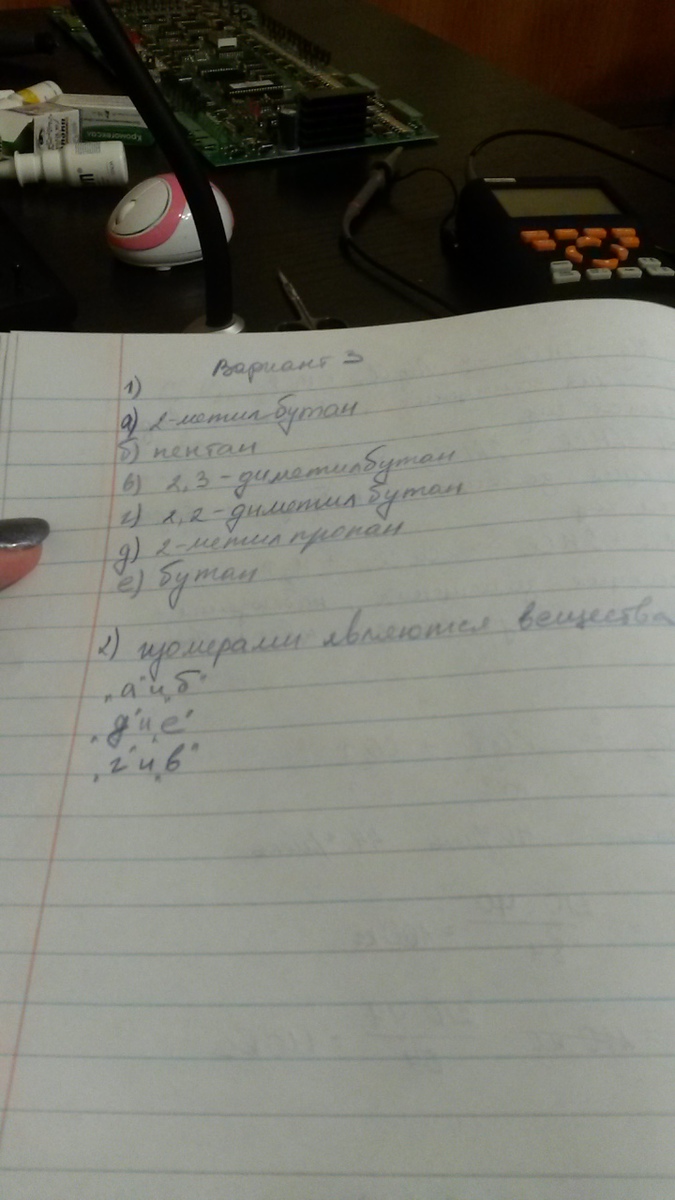 Кромогексал
Вариант 3
1)
а) 2-метилбутан
б) пентан
в) 2,3-диметилбутан
г) 2,2-диметилбутан
д) 2-метилпропан
е) бутан
2) изомерами являются вещества
"а" и "б"
"д" и "е"
"г" и "в"